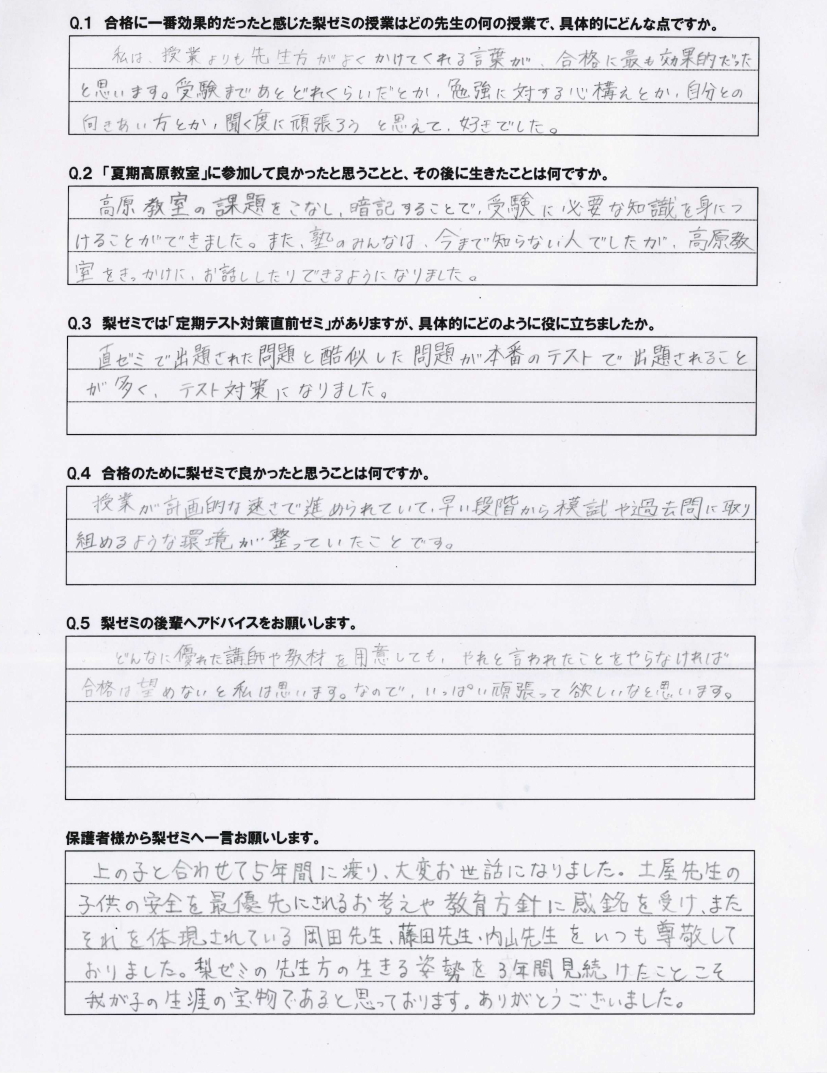 Q.1 合格に一番効果的だったと感じた梨ゼミの授業はどの先生の何の授業で、具体的にどんな点ですか。
私は、授業よりも先生方がよくかけてくれる言葉が、合格に最も効果的だった
と思います。受験まであとどれくらいだとか、勉強に対する心構えとか、自分との
向きあい方とか、聞く度に頑張ろう と思えて、好きでした。
Q.2 「夏期高原教室」に参加して良かったと思うことと、その後に生きたことは何ですか。
高原教室の課題をこなし、暗記することで、受験に必要な知識を身につ
けることができました。また、塾のみんなは、今まで知らない人でしたが、高原教
室をきっかけに、お話ししたりできるようになりました。
Q.3 梨ゼミでは「定期テスト対策直前ゼミ」がありますが、具体的にどのように役に立ちましたか。
直ゼミで出題された問題と酷似した問題が本番のテストで出題されること
が多く、テスト対策になりました。
Q.4 合格のために梨ゼミで良かったと思うことは何ですか。
授業が計画的な速さで進められていて、早い段階から模試や過去問に取り
組めるような環境が整っていたことです。
Q.5 梨ゼミの後輩へアドバイスをお願いします。
どんなに優れた講師や教材を用意しても、やれと言われたことをやらなければ
合格は望めないと私は思います。なので、いっぱい頑張って欲しいなと思います。
保護者様から梨ゼミへ一言お願いします。
上の子と合わせて5年間に渡り、大変お世話になりました。土屋先生の
子供の安全を最優先にされるお考えや教育方針に感銘を受け、また
それを体現されている岡田先生、藤田先生、内山先生をいつも尊敬して
おりました。梨ゼミの先生方の生きる姿勢を3年間見続けたことこそ
我が子の生涯の宝物であると思っております。ありがとうございました。